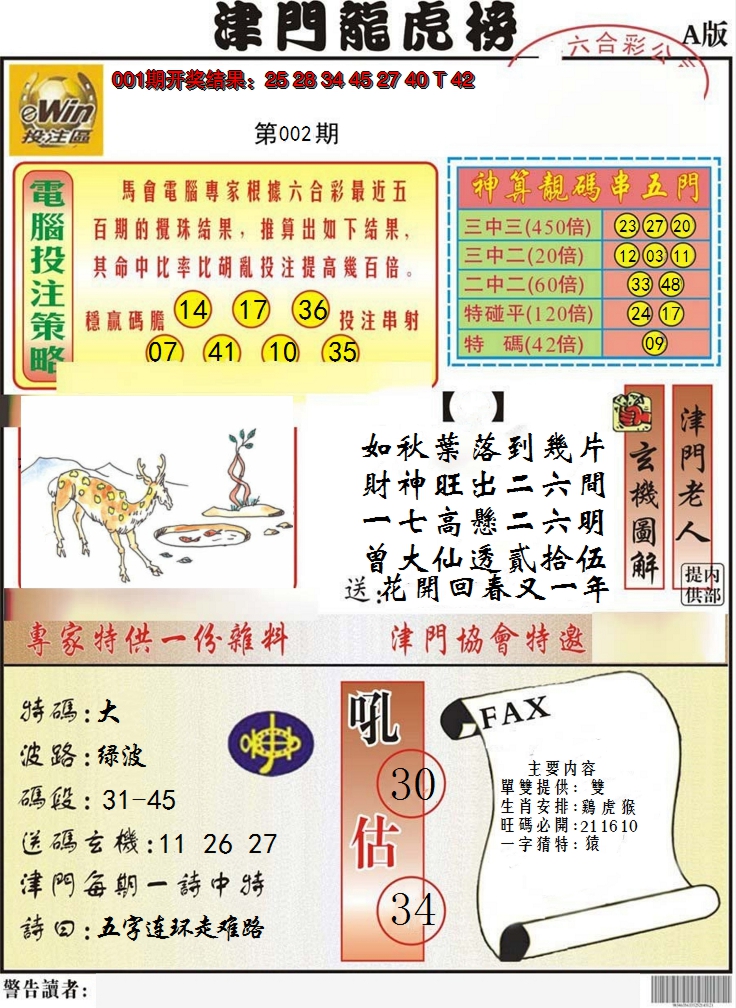 津門龍虎榜
A版
六合彩公
001期开奖结果：25 28 34 45 27 40 T 42
eWin
投注區
第002期
電腦投注策略
馬會電腦專家根據六合彩最近五
百期的攪珠结果，推算出如下结果，
其命中比率比胡亂投注提高幾百倍。
穩贏碼膽 14 17 36 投注串射
07 41 10 35
神算靚碼串五門
三中三(450倍) 23 27 20
三中二(20倍) 12 03 11
二中二(60倍) 33 48
特碰平(120倍) 24 17
特 碼(42倍) 09
【 】
如秋葉落到幾片
財神旺出二六間
一七高懸二六明
曾大仙透貳拾伍
送:花開回春又一年
玄機圖解
津門老人
内部提供
專家特供一份雜料
津門協會特邀
特碼:大
波路:绿波
碼段:31-45
送碼玄機:11 26 27
津門每期一詩中特
詩曰:五字连环走难路
吼
30
估
34
FAX
主要内容
單雙提供：雙
生肖安排:鷄虎猴
旺碼必開:211610
一字猜特:猿
警告讀者: